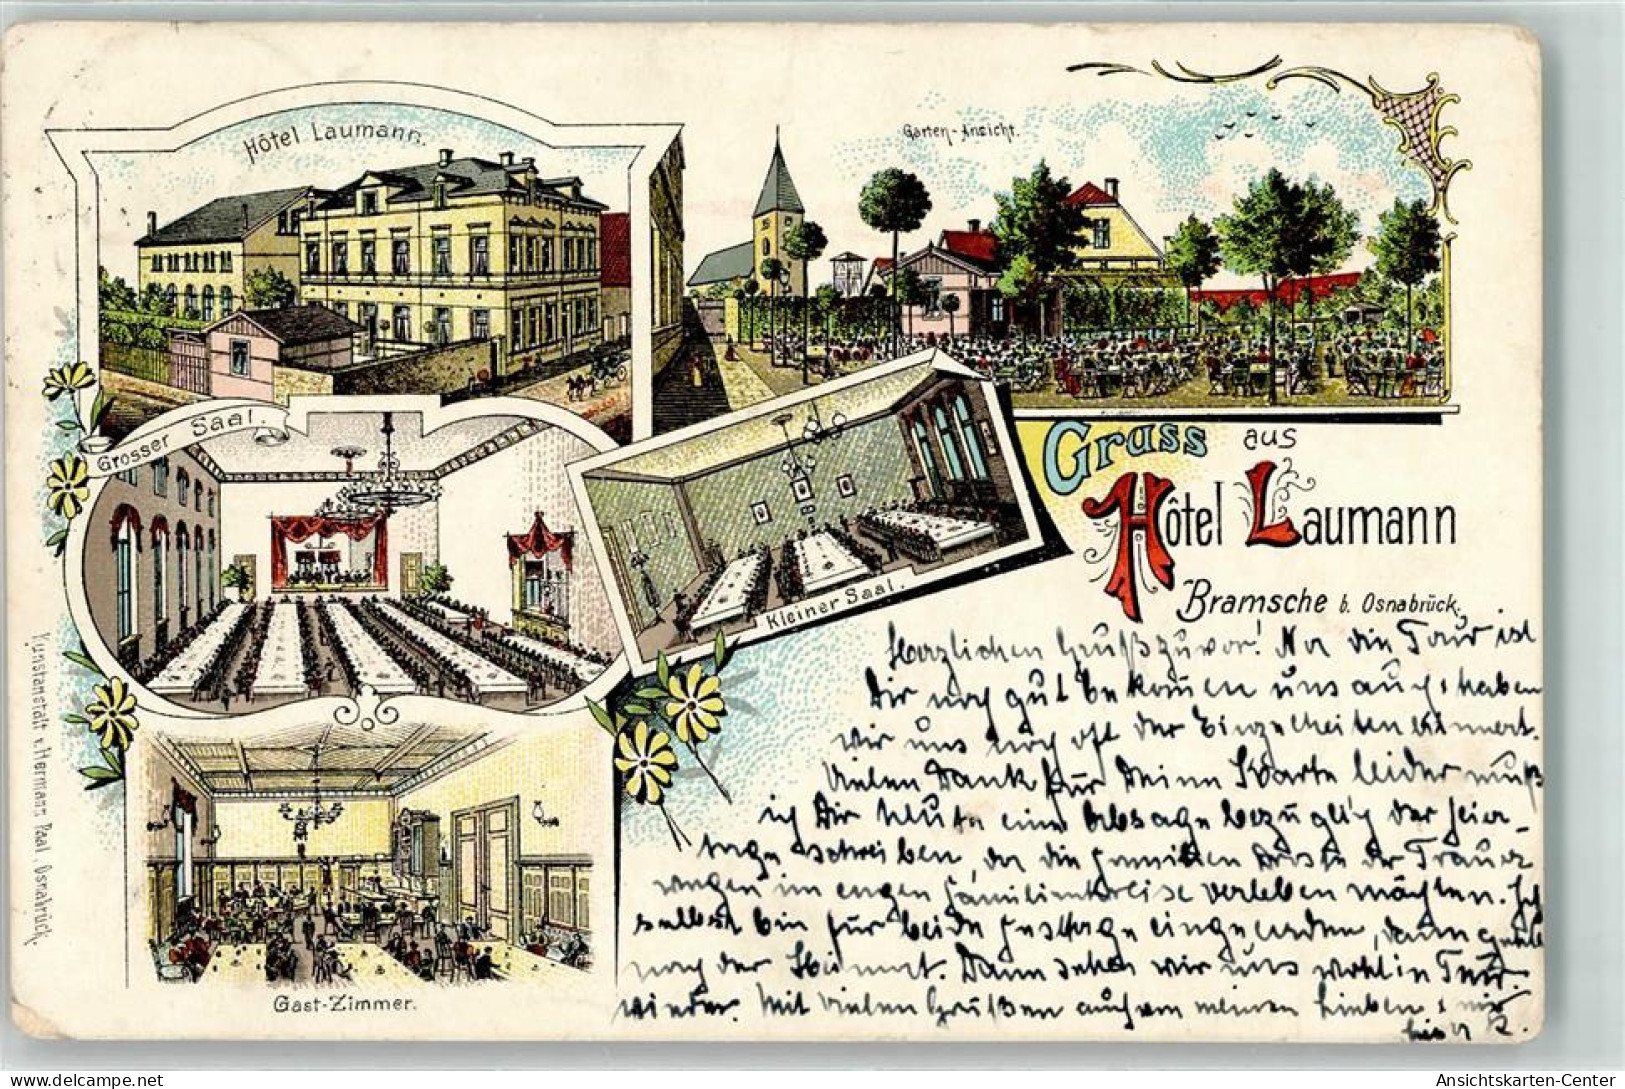 Hôtel Laumann.
Garten-Ansicht.
Grosser Saal.
Kleiner Saal.
Gruss aus
Hôtel Laumann
Bramsche b. Osnabrück.
Herzlichen Gruß zuvor! Die Tour ist
Dir noch gut bekomen uns auch, haben
wir uns noch oft der Einzelheiten erinnert.
Vielen Dank für Deine Karte leider muß
ich Dir heute eine Absage bezüglich der Feier-
tage schreiben, da die Familien der Trauer
wegen im engen Familienkreise verleben möchten. Ich
selbst bin für beide Festtage eingeladen, dann
nach der Heimat. Dann sehen wir uns wohl in
wieder. Mit vielen Grüßen auch von meinen Lieben
Gast-Zimmer.
Kunstanstalt v. Hermann Paal, Osnabrück.
Ansichtskarten-Center